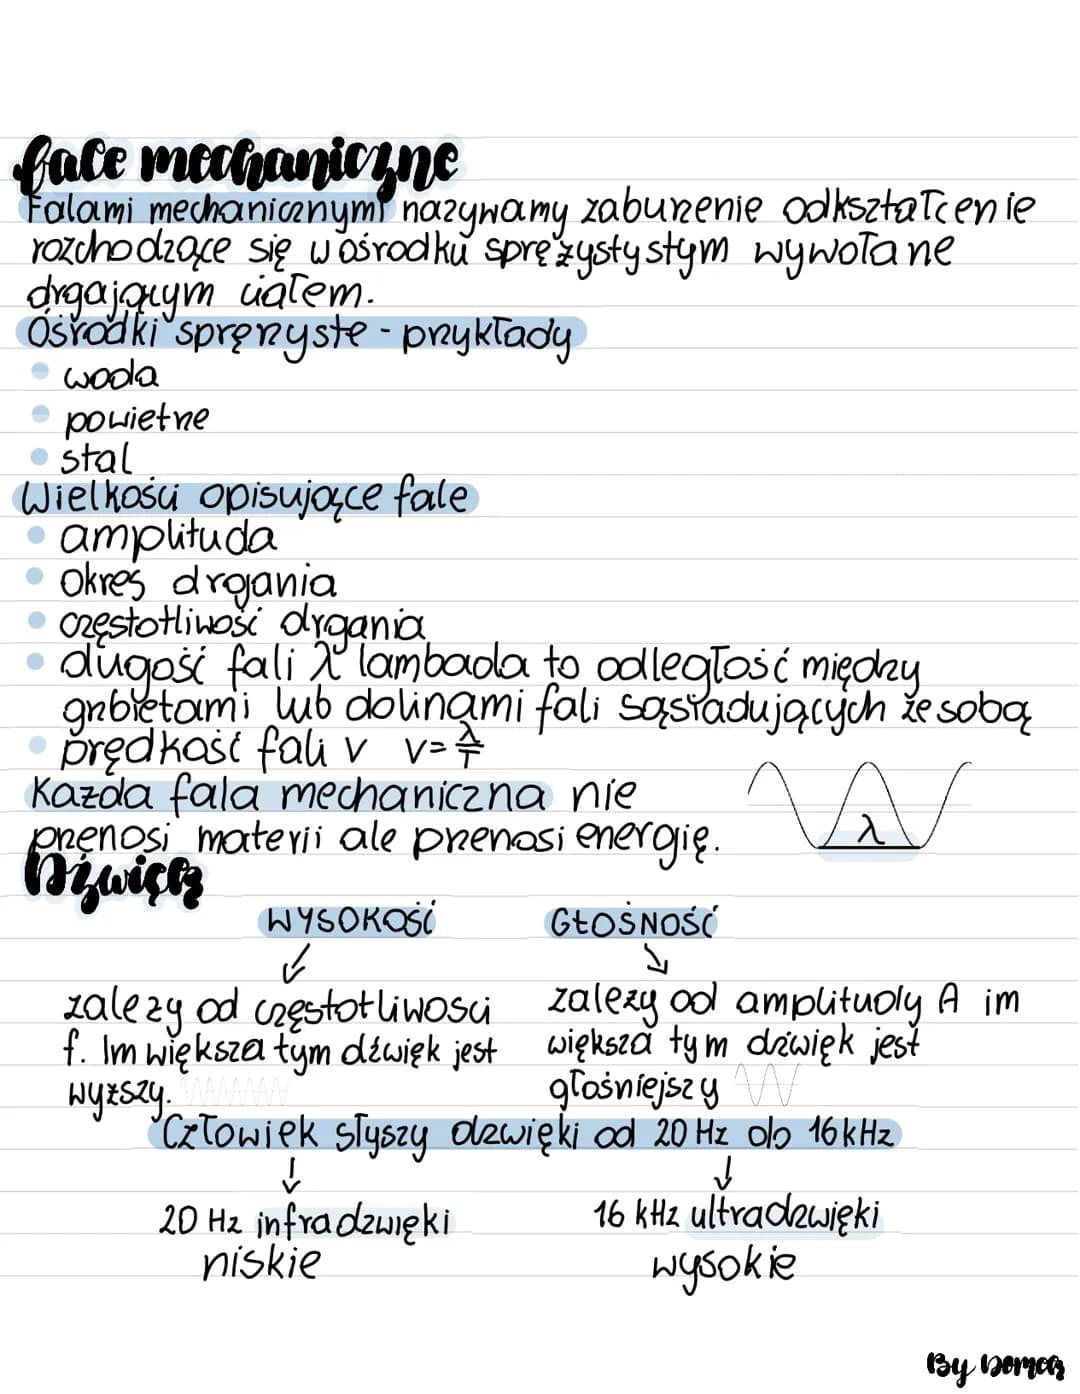 fale mechaniczne
Falami mechanicznymi nazywamy zaburzenie odkształcenie
rozchodzące się w ośrodku sprężystystym wywołane
drgającym ciałem.
Ośrodki sprężyste - przykłady
woda
powietrze
stal
Wielkości opisujące fale
amplituda
okres drgania
częstotliwość drgania
długość fali λ lambada to odległość między
grzbietami lub dolinami fali sąsiadujących ze sobą
prędkość fali v v=λ/T
Każda fala mechaniczna nie
przenosi materii ale przenosi energię.
λ
Dźwięk
WYSOKOŚĆ GŁOŚNOŚĆ
zależy od częstotliwosci zależy od amplitudy A im
f. Im większa tym dźwięk jest większa tym dźwięk jest
wyższy. głośniejszy
Człowiek słyszy dzwięki od 20 Hz do 16 kHz
20 Hz infradzwięki 16 kHz ultradzwięki
niskie wysokie
By Domcz